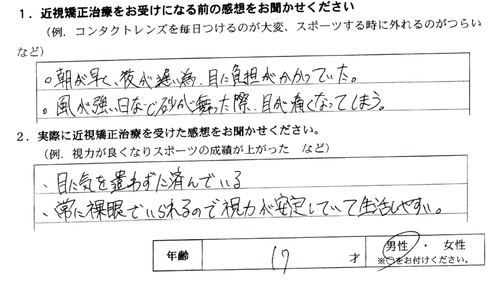 1．近視矯正治療をお受けになる前の感想をお聞かせください
（例．コンタクトレンズを毎日つけるのが大変、スポーツする時に外れるのがつらい
など）
○朝が早く、夜が遅い為、目に負担がかかっていた。
○風が強い日など砂が舞った際、目が痛くなってしまう。
2．実際に近視矯正治療を受けた感想をお聞かせください。
（例．視力が良くなりスポーツの成績が上がった　など）
、目に気を遣わずに済んでいる
、常に裸眼でいられるので視力が安定していて生活しやすい。
年齢　17　才　男性・女性
※○をお付けください。